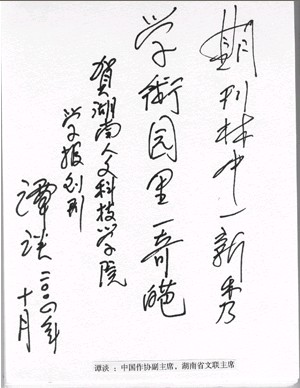 期刊林中一新秀
学術园里一奇葩
贺湖南人文科技学院
学报创刊
谭谈 二〇〇四年
十月
谭谈：中国作协副主席，湖南省文联主席